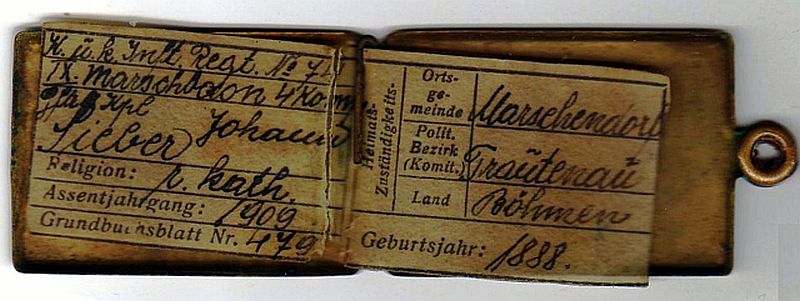 K. u. k. Inft. Regt. No 74
IX. Marschbaon 4 Komp
Johann
Sieber
Religion: r. kath.
Assentjahrgang: 1909
Grundbuchsblatt Nr. 479
Heimats-
Zuständigkeits-
Orts-
ge-
meinde Marschendorf
Polit.
Bezirk
(Komit.) Trautenau
Land Böhmen
Geburtsjahr: 1888.